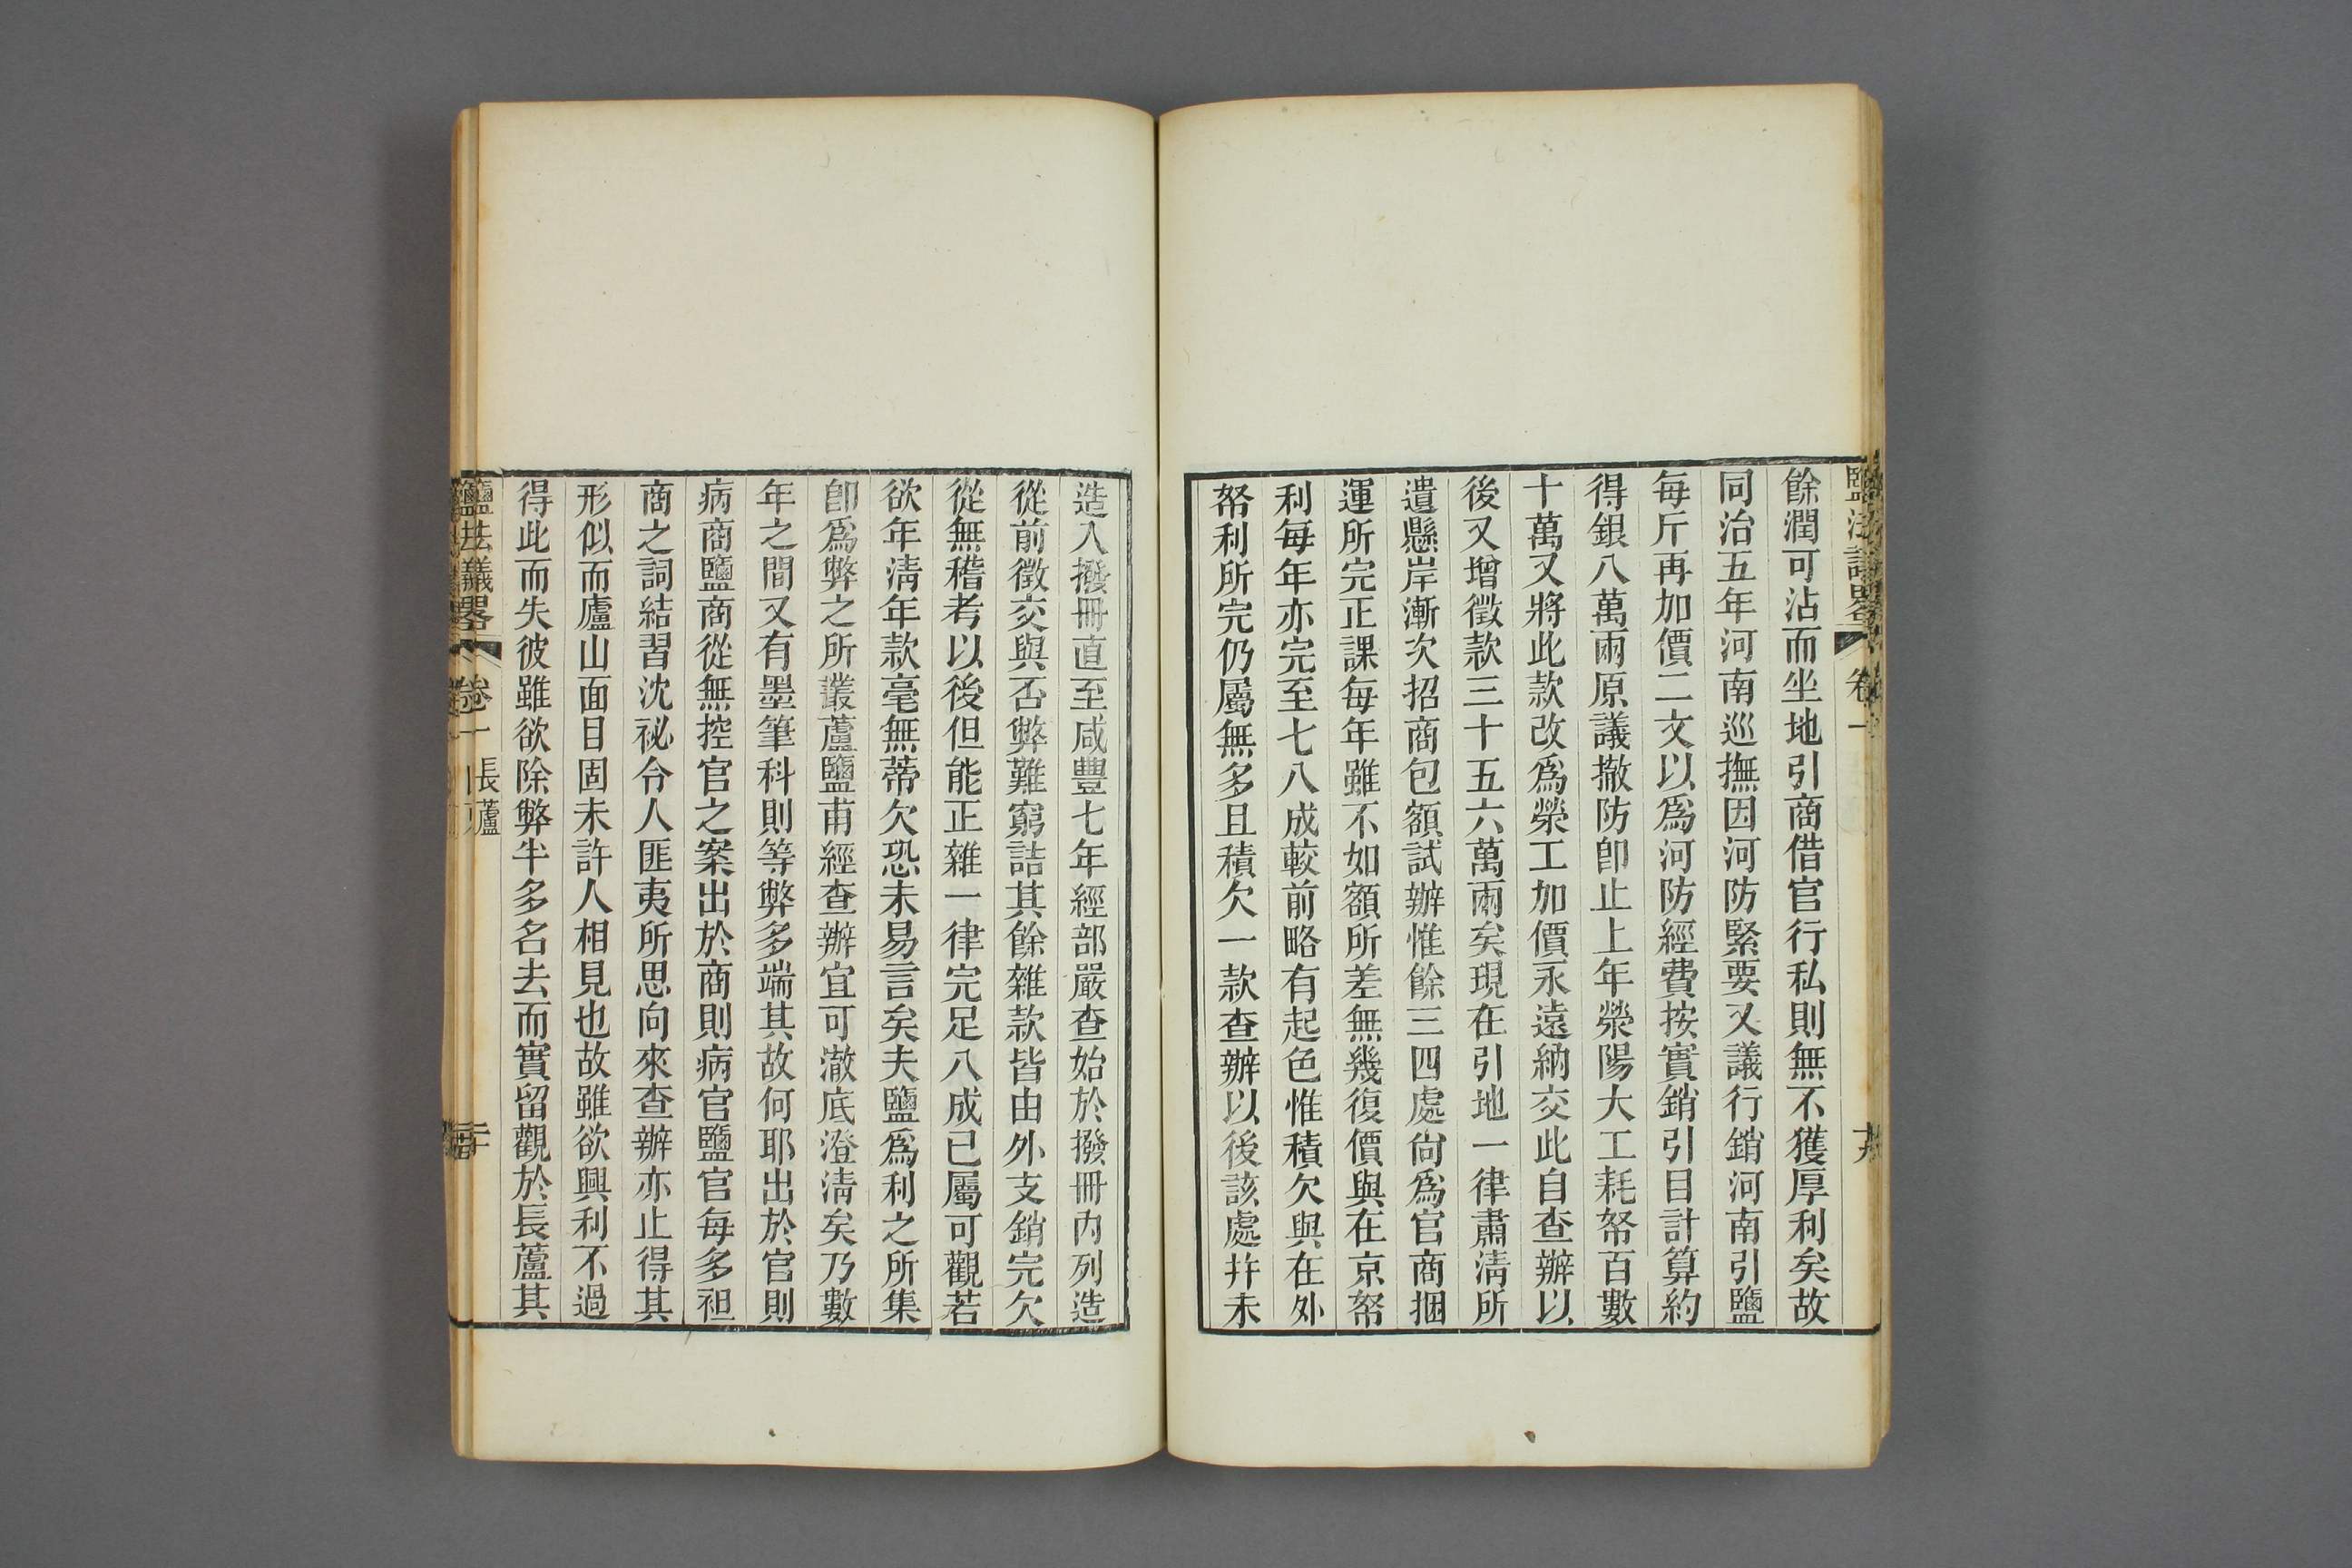 鹽法議畧 卷一
餘潤可沾而坐地引商借官行私則無不獲厚利矣故
同治五年河南巡撫因河防緊要又議行銷河南引鹽
每斤再加價二文以爲河防經費按實銷引目計算約
得銀八萬兩原議撤防卽止上年滎陽大工耗帑百數
十萬又將此款改爲滎工加價永遠納交此自查辦以
後又增徵款三十五六萬兩矣現在引地一律肅淸所
遺懸岸漸次招商包額試辦惟餘三四處尙爲官商捆
運所完正課每年雖不如額所差無幾復價與在京帑
利每年亦完至七八成較前略有起色惟積欠與在外
帑利所完仍屬無多且積欠一款查辦以後該處幷未
造入撥冊直至咸豐七年經部嚴查始於撥冊内列造
從前徵交與否弊難窮詰其餘雜款皆由外支銷完欠
從無稽考以後但能正雜一律完足八成已屬可觀若
欲年淸年款毫無蒂欠恐未易言矣夫鹽爲利之所集
卽爲弊之所叢蘆鹽甫經查辦宜可澈底澄淸矣乃數
年之間又有墨筆科則等弊多端其故何耶出於官則
病商鹽商從無控官之案出於商則病官鹽官每多袒
商之詞結習沈祕令人匪夷所思向來查辦亦止得其
形似而廬山面目固未許人相見也故雖欲興利不過
得此而失彼雖欲除弊半多名去而實留觀於長蘆其
鹽法議畧 卷一 長蘆 二十